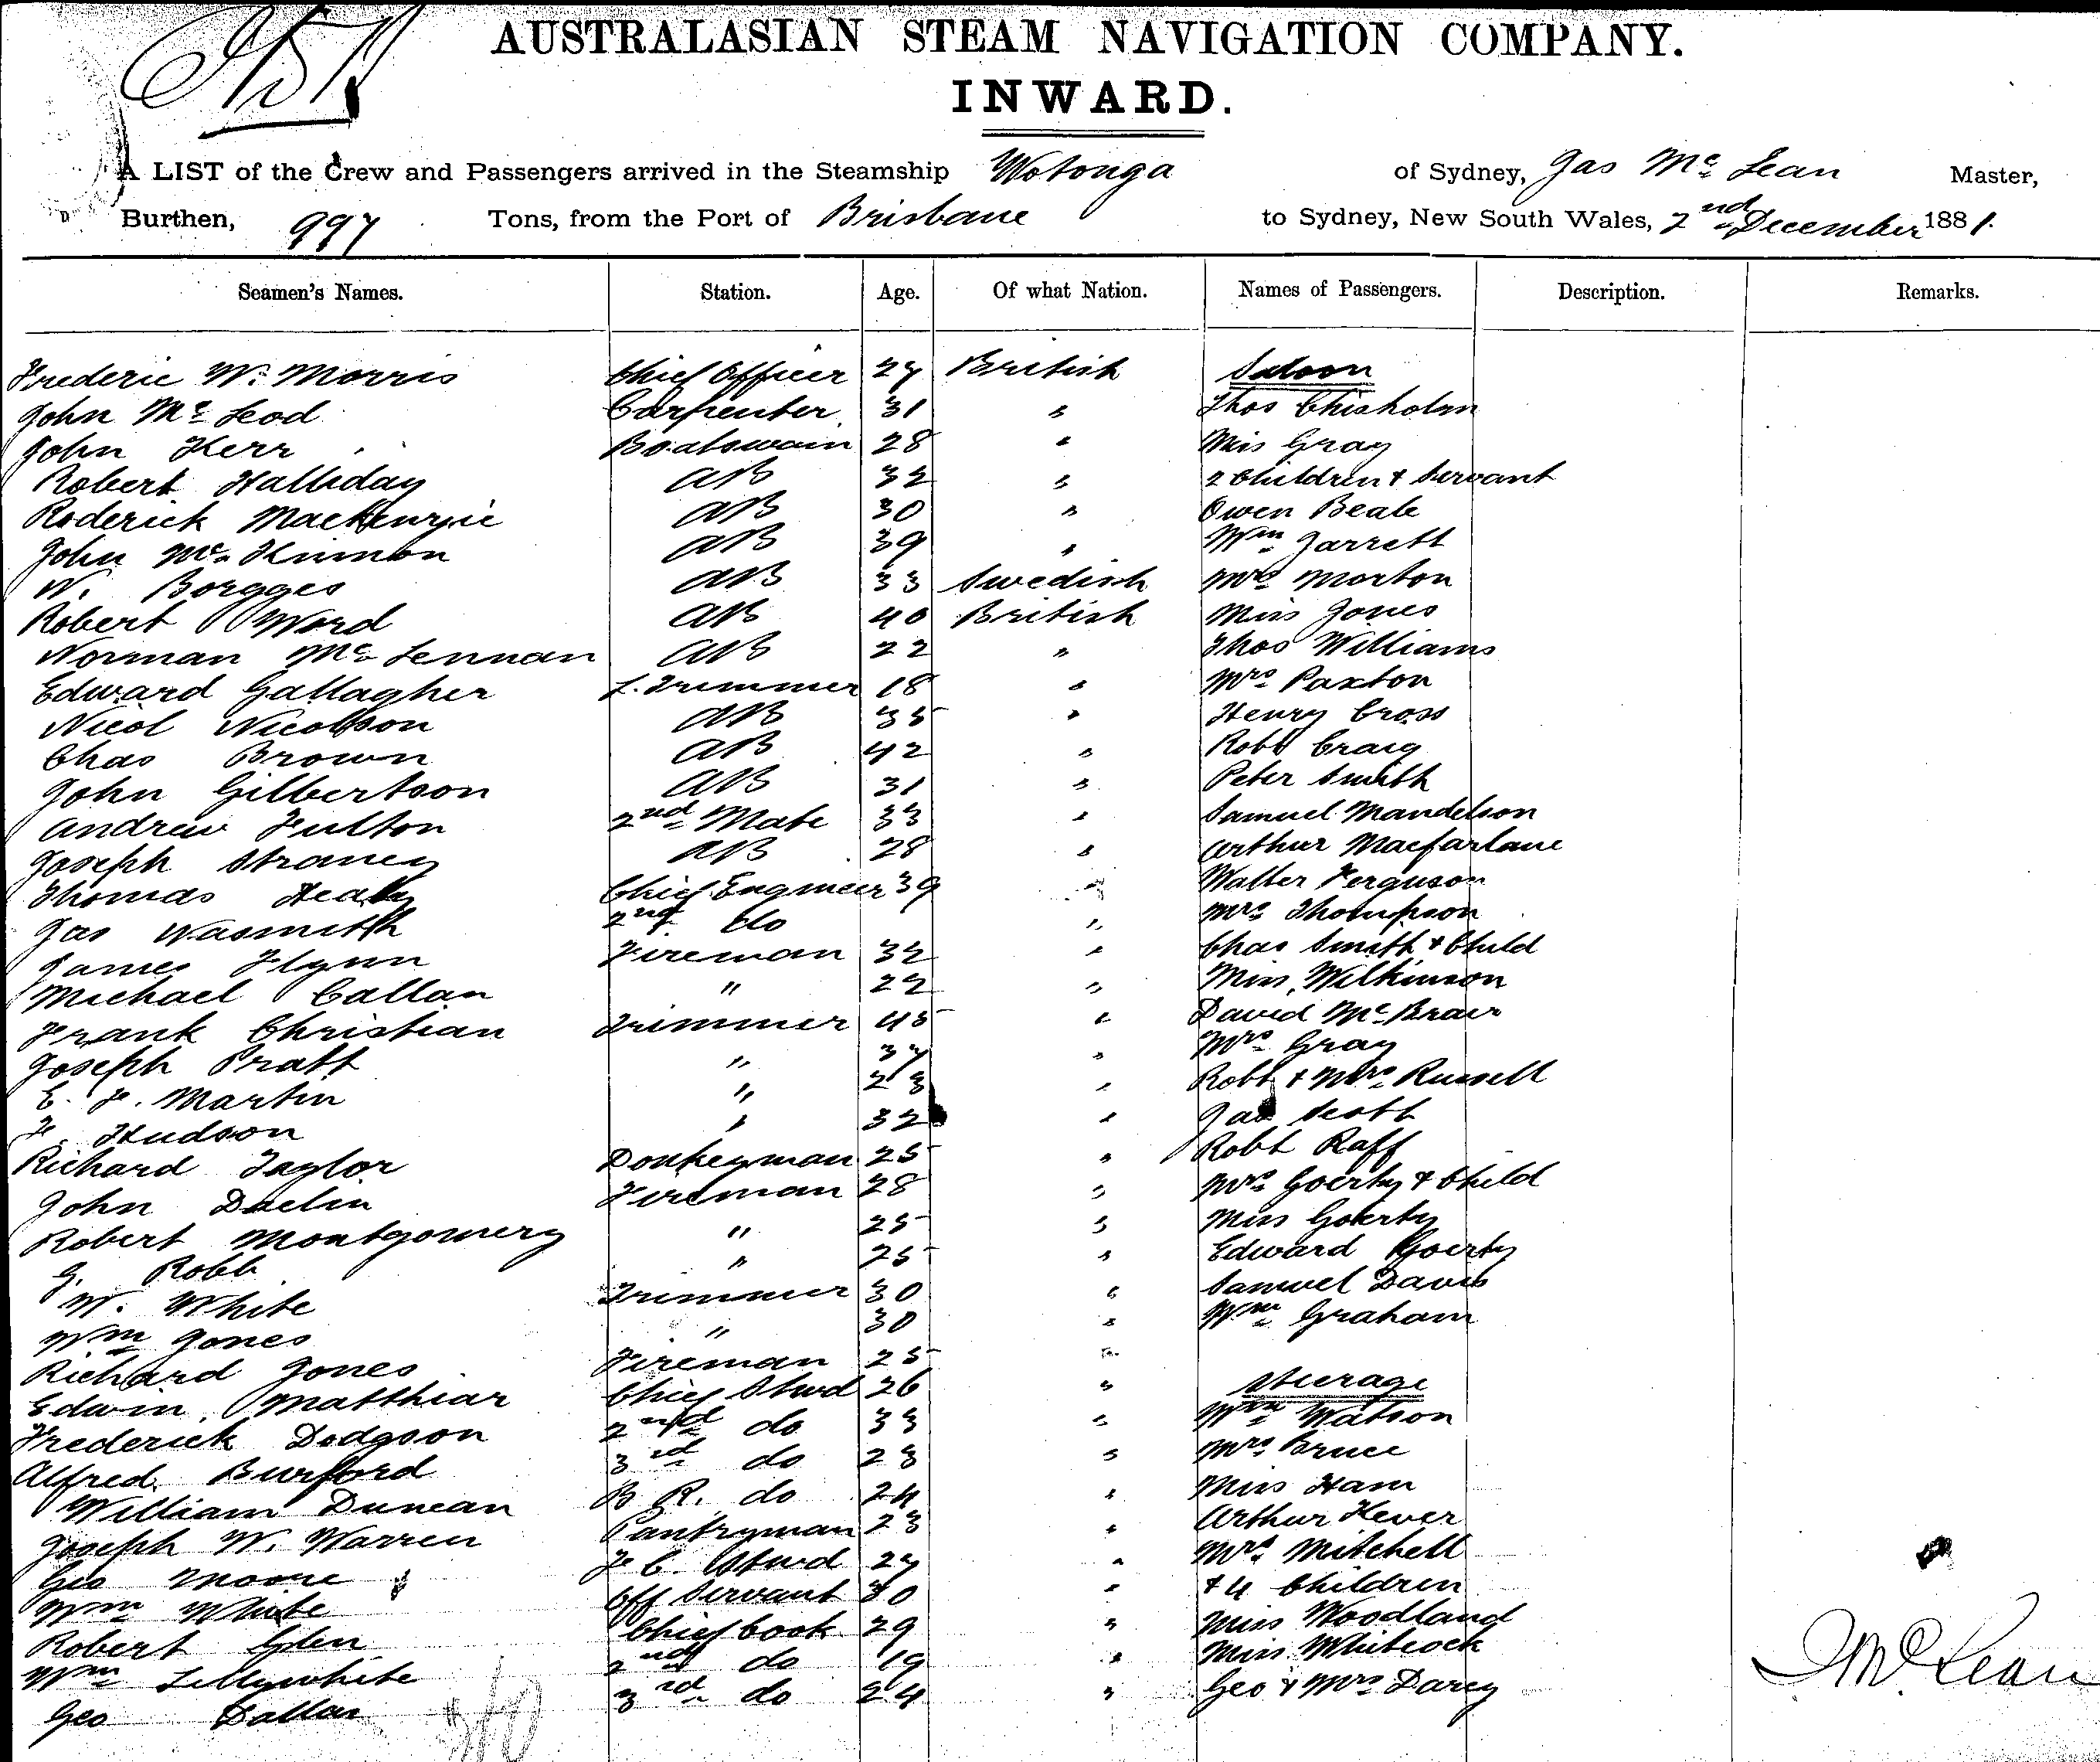 AUSTRALASIAN STEAM NAVIGATION COMPANY.
INWARD.
A LIST of the Crew and Passengers arrived in the Steamship Wotonga of Sydney, Jas Mc Lean Master,
Burthen, 997 Tons, from the Port of Brisbane to Sydney, New South Wales, 2nd December 1881.
Seamen's Names. Station. Age. Of what Nation. Names of Passengers. Description. Remarks.
Frederic W. Morris Chief Officer 27 British Saloon
John Mc Leod Carpenter 31 " Thos Chisholm
John Kerr Boatswain 28 " Miss Gray
Robert Halliday AB 32 " 2 Children & Servant
Roderick Mackenzie AB 30 " Owen Beale
John Mc Kinnon AB 39 " Wm Jarrett
W. Borgges AB 33 Swedish Mrs Morton
Robert Word AB 40 British Miss Jones
Norman Mc Lennan AB 22 " Thos Williams
Edward Gallagher L. Trimmer 18 " Mrs Paxton
Nicol Nicolson AB 35 " Henry Cross
Chas Brown AB 42 " Robt Craig
John Gilbertson AB 31 " Peter Smith
Andrew Fulton 2nd Mate 33 " Samuel Mandelson
Joseph Straney AB 28 " Arthur Macfarlane
Thomas Healy Chief Engineer 39 " Walter Ferguson
Jas Wasmith 2nd do " Mrs Thompson
James Flynn Fireman 32 " Chas Smith & Child
Michael Callan " 22 " Miss Wilkinson
Frank Christian Trimmer 45 " David Mc Brair
Joseph Pratt " 37 " Mrs Gray
E. F. Martin " 23 " Robt & Mrs Russell
F. Hudson " 32 " Jas Scott
Richard Taylor Donkeyman 25 " Robt Raff
John Daelin Fireman 28 " Mrs Goerty & Child
Robert Montgomery " 25 " Miss Goerty
G. Robb " 25 " Edward Goerty
W. White Trimmer 30 " Samuel Davis
Wm Jones " 30 " Wm Graham
Richard Jones Fireman 25 "
Edwin Matthiar Chief Stwd 26 " Steerage
Frederick Dodgson 2nd do 33 " Wm Watson
Alfred Burford 3rd do 23 " Mrs Bruce
William Duncan B R. do 24 " Miss Ham
Joseph W. Warren Pantryman 23 " Arthur Hever
Geo Moore F C. Stwd 27 " Mrs Mitchell
Wm White Off Servant 30 " & 4 Children
Robert Glen Chief Cook 29 " Miss Woodland
Wm Lillywhite 2nd do 19 " Miss Whitcock
Geo Dallas 3rd do 24 " Geo & Mrs Darcy
J Mc Lean